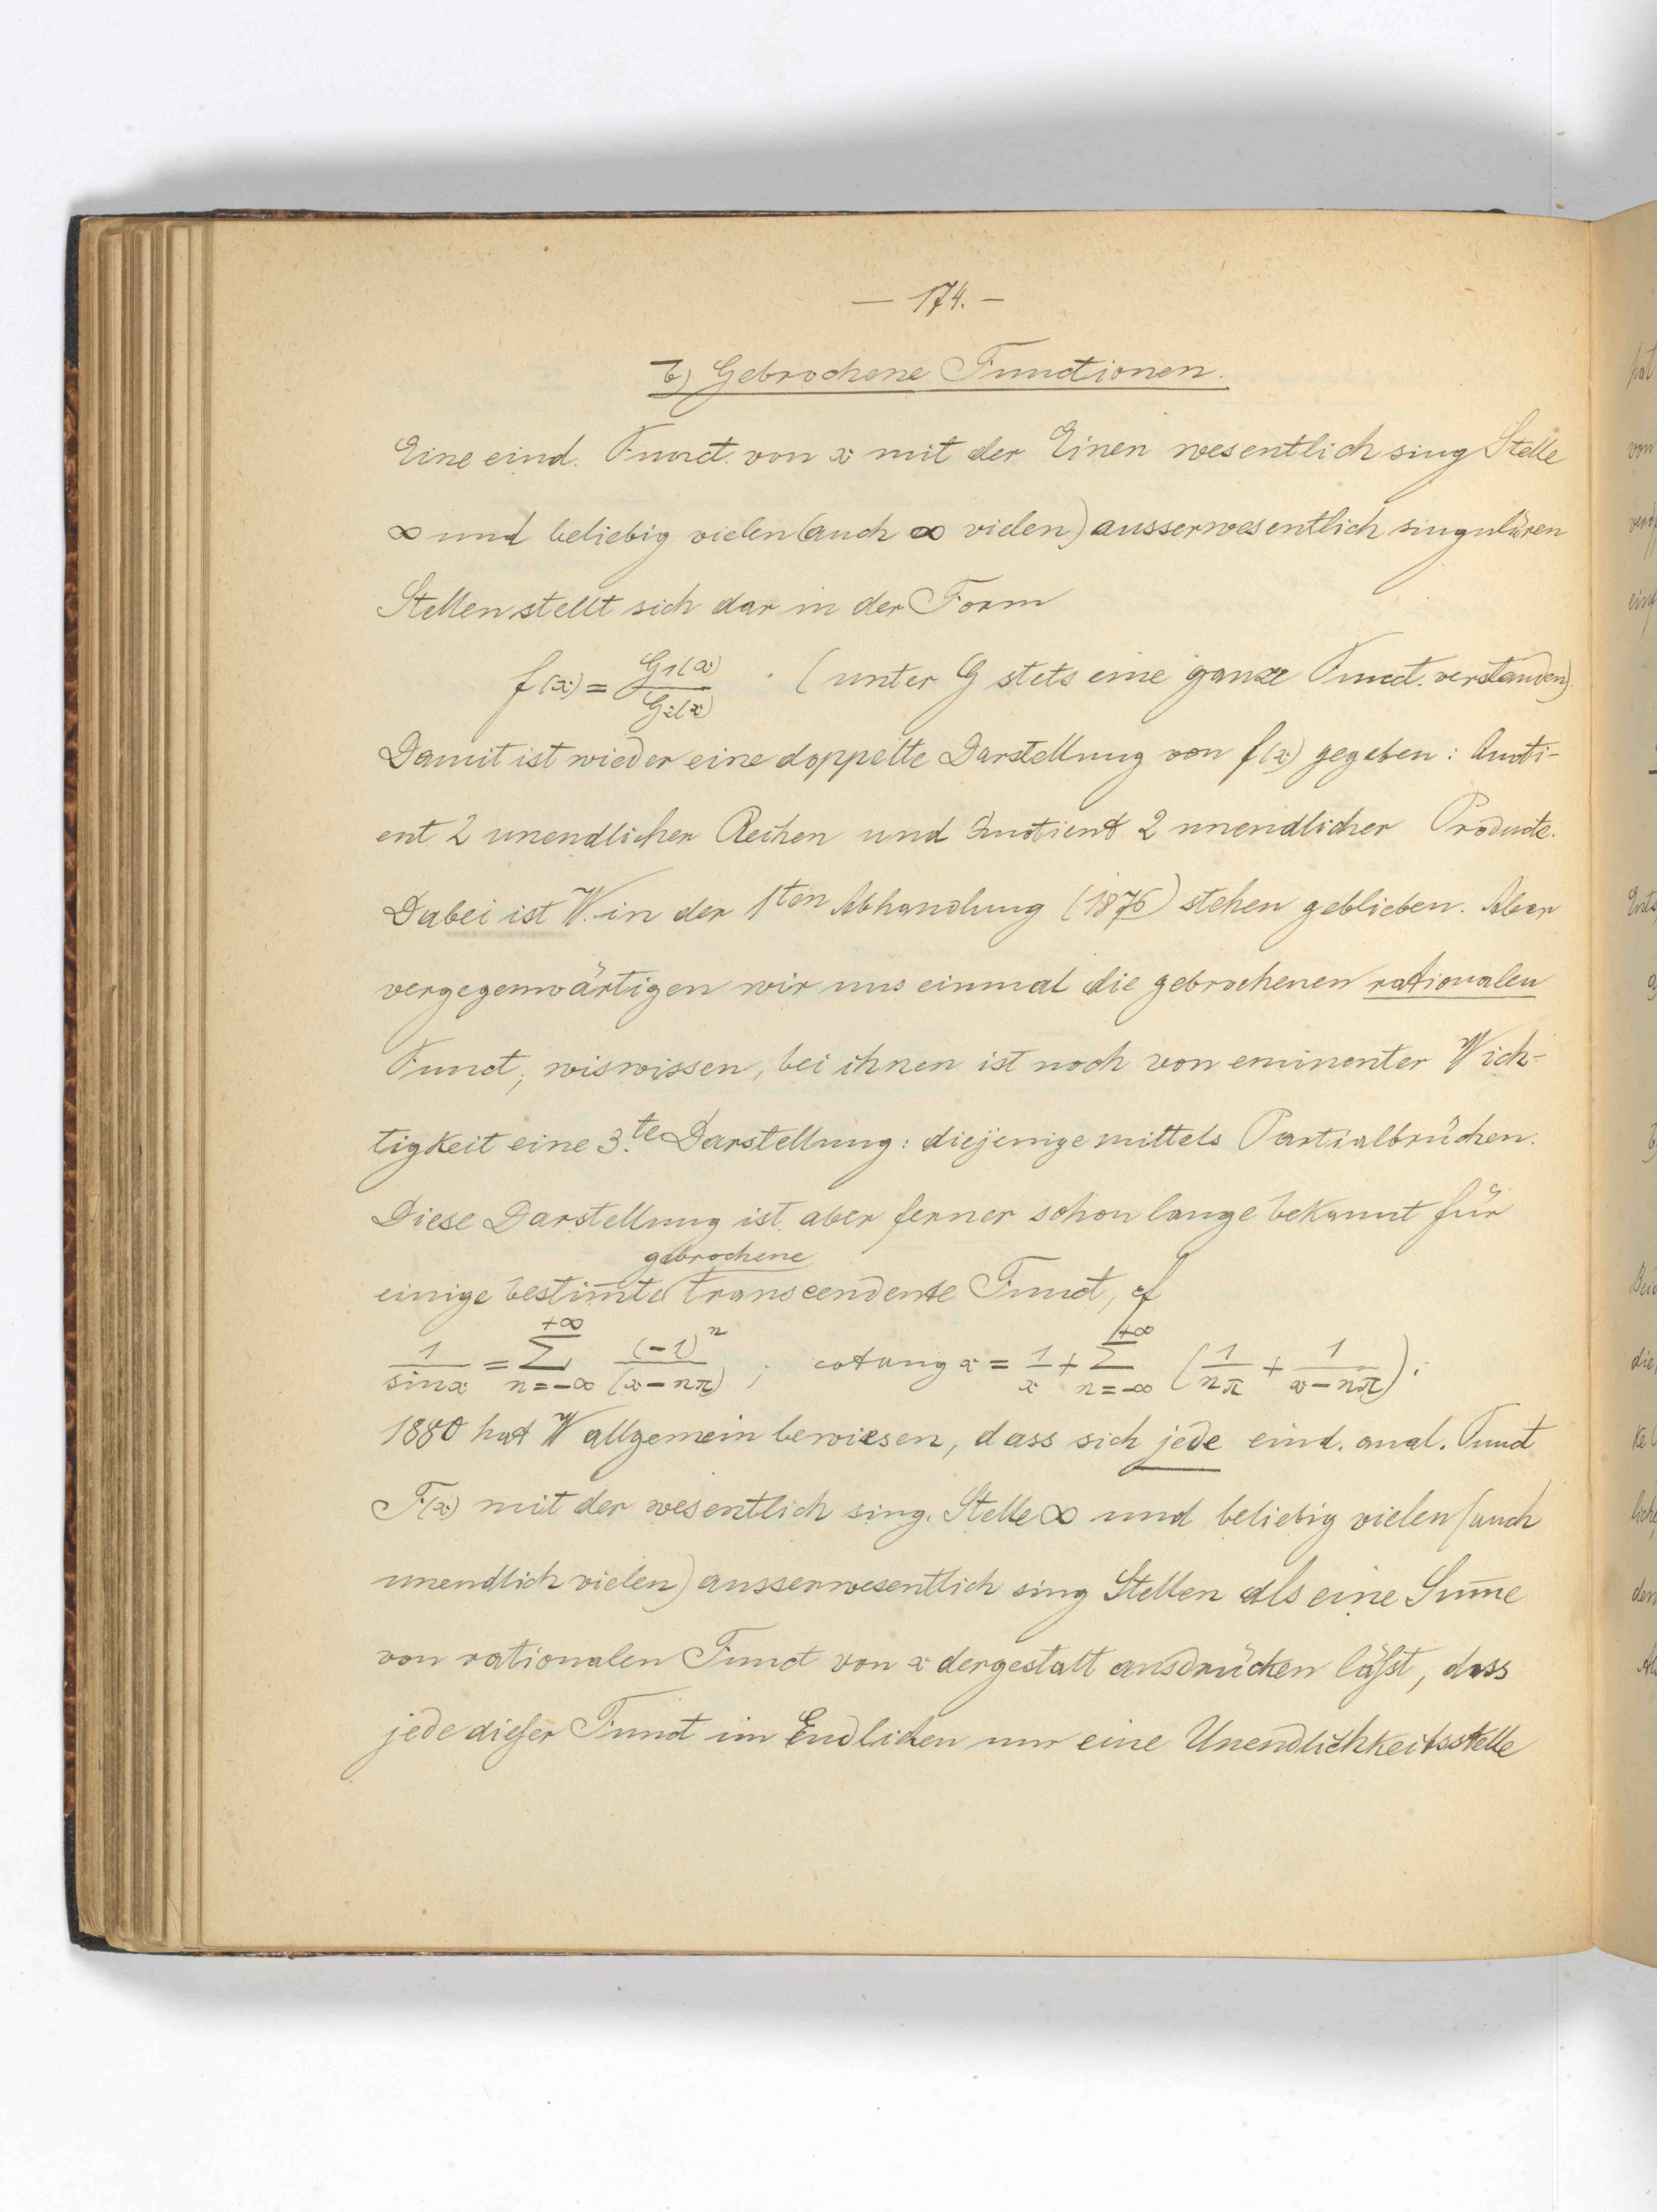 — 174. —
b) Gebrochene Functionen.
Eine eind. Funct. von x mit der Einen wesentlich sing Stelle
∞ und beliebig vielen (auch ∞ vielen) ausserwesentlich singulären
Stellen stellt sich dar in der Form
f(x) = G₁(x)/G₂(x) . (unter G stets eine ganze Funct. verstanden).
Damit ist wieder eine doppelte Darstellung von f(x) gegeben: Quoti-
ent 2 unendlicher Reihen und Quotient 2 unendlicher Producte.
Dabei ist W. in der 1ten Abhandlung (1876) stehen geblieben. Aber
vergegenwärtigen wir uns einmal die gebrochenen rationalen
Funct, wir wissen, bei ihnen ist noch von eminenter Wich-
tigkeit eine 3.te Darstellung: diejenige mittels Partialbrüchen.
Diese Darstellung ist aber ferner schon lange bekannt für
gebrochene
einige bestim̄te transcendente Funct, cf
1/sin x = Σ_{n=-∞}^{+∞} (-1)ⁿ/(x-nπ) ; cotang x = 1/x + Σ_{n=-∞}^{+∞} (1/nπ + 1/(x-nπ)).
1880 hat W allgemein bewiesen, dass sich jede eind. anal. Funct
F(x) mit der wesentlich sing. Stelle ∞ und beliebig vielen (auch
unendlich vielen) ausserwesentlich sing Stellen als eine Sum̄e
von rationalen Funct von x dergestalt ausdrücken läſst, dass
jede dieſer Funct im Endlichen nur eine Unendlichkeitsstelle